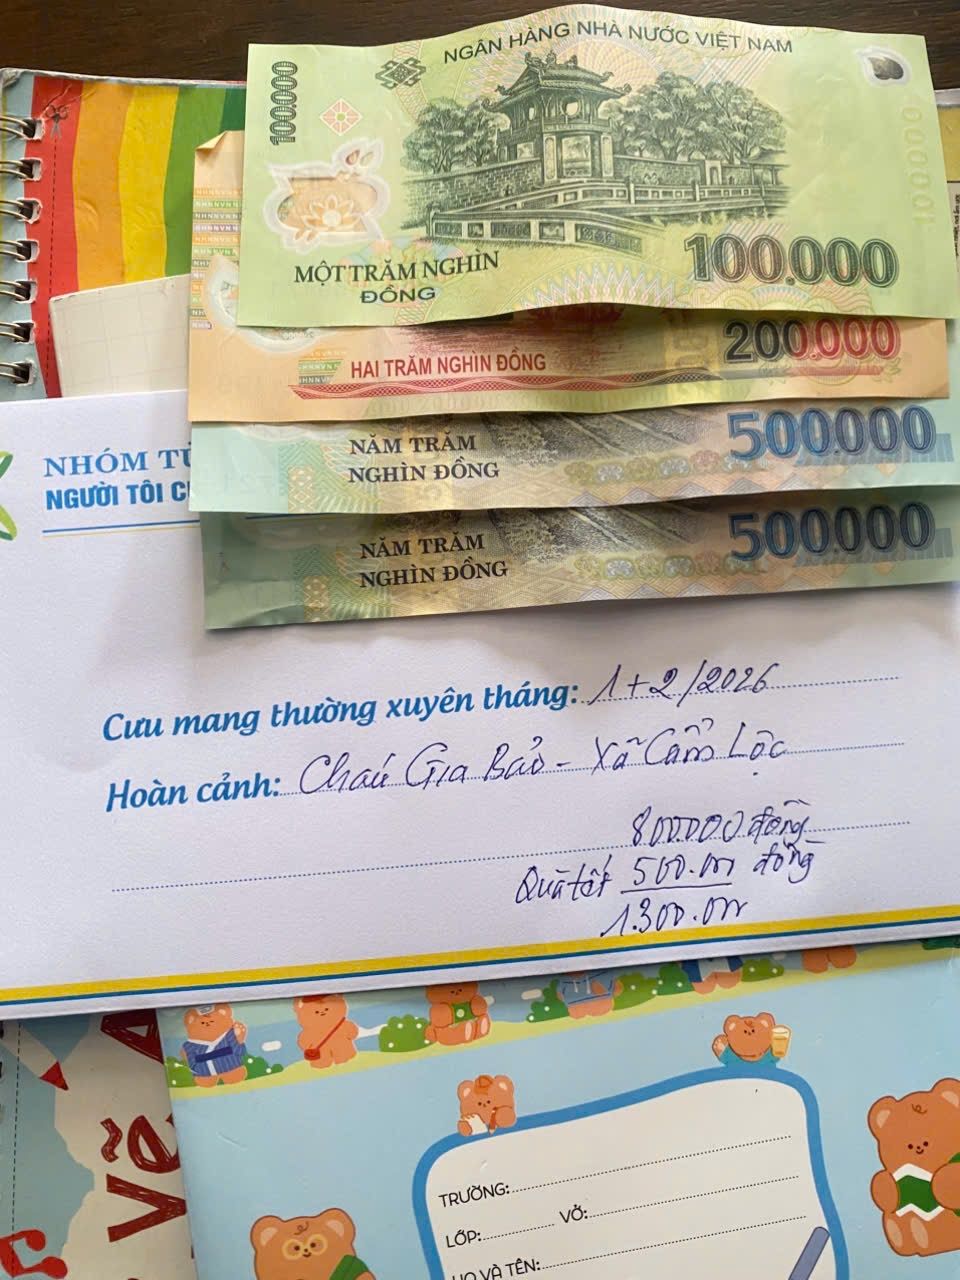 NGÂN HÀNG NHÀ NƯỚC VIỆT NAM
100000
MỘT TRĂM NGHÌN
ĐỒNG
100.000
HAI TRĂM NGHÌN ĐỒNG
200.000
NĂM TRĂM
NGHÌN ĐỒNG
500000
NĂM TRĂM
NGHÌN ĐỒNG
500000
NHÓM
NGƯỜI TÔI
Cưu mang thường xuyên tháng: 1+2/2026
Hoàn cảnh: Cháu Gia Bảo - Xã Cẩm Lộc
800000 đồng
Quà tết 500.000 đồng
1.300.000
VẼ
TRƯỜNG:
LỚP: VỞ:
HỌ VÀ TÊN: